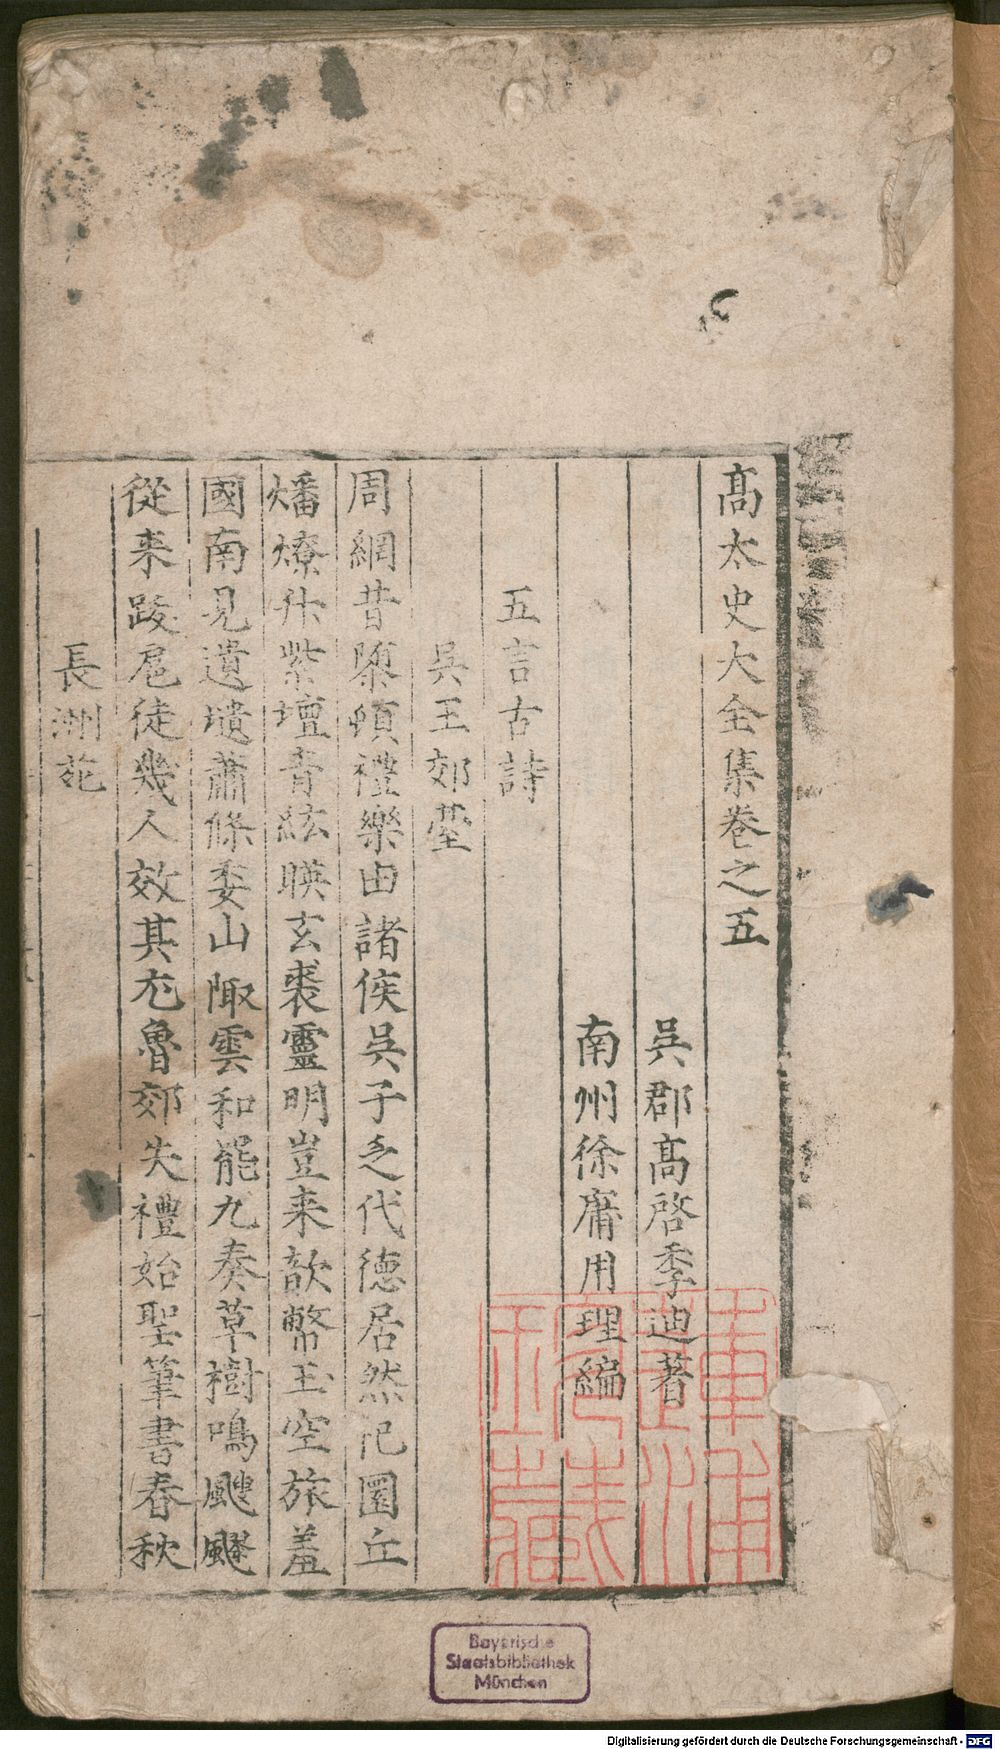 高太史大全集卷之五
吳郡高啓季迪著
南州徐庸用理編
五言古詩
吳王郊臺
周綱昔隳頓禮樂由諸侯吳子乏代德居然祀圜丘
燔燎升紫壇青紘暎玄裘靈明豈来歆幣玉空旅羞
國南見遺壝蕭條委山陬雲和罷九奏草樹鳴颼飀
從来跋扈徒幾人效其尤魯郊失禮始聖筆書春秋
長洲苑
Bayerische
Staatsbibliothek
München
Digitalisierung gefördert durch die Deutsche Forschungsgemeinschaft - DFG